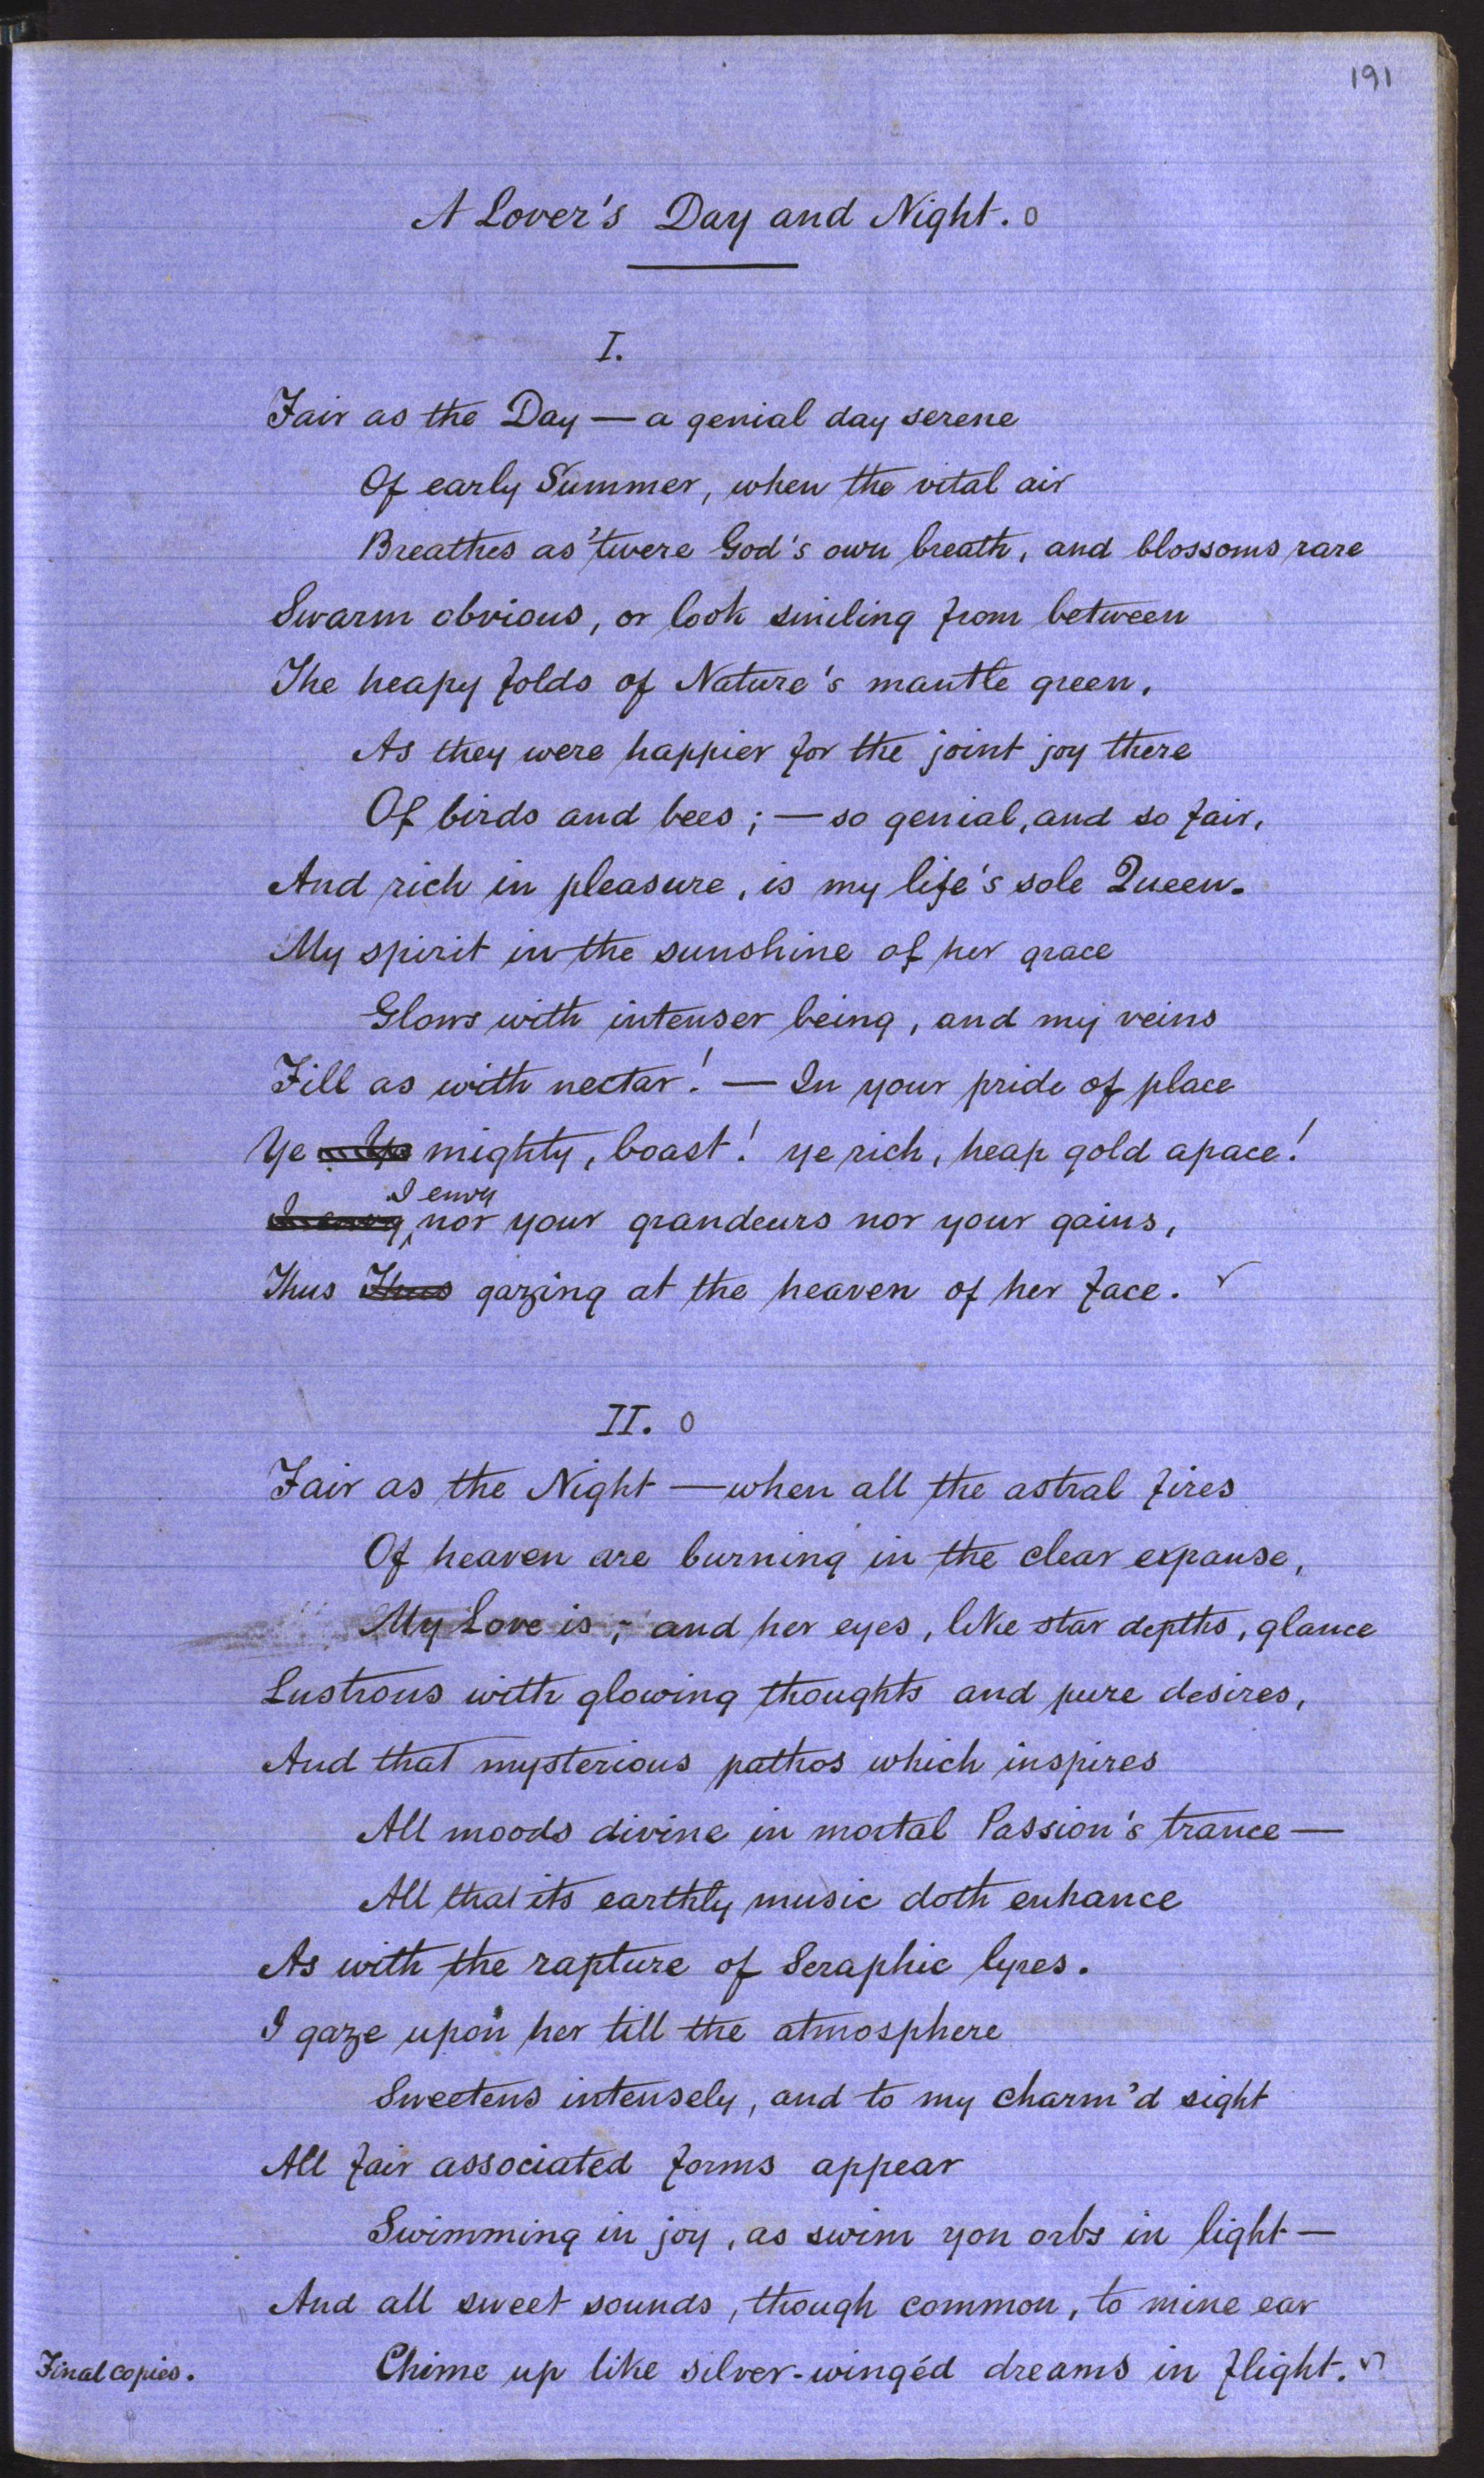 191
A Lover's Day and Night. o
I.
Fair as the Day — a genial day serene
Of early Summer, when the vital air
Breathes as 'twere God's own breath, and blossoms rare
Swarm obvious, or look smiling from between
The heapy folds of Nature's mantle green,
As they were happier for the joint joy there
Of birds and bees; — so genial, and so fair,
And rich in pleasure, is my life's sole Queen.
My spirit in the sunshine of her grace
Glows with intenser being, and my veins
Fill as with nectar! — In your pride of place
Ye mighty, boast! ye rich, heap gold apace!
I envy
I envy nor your grandeurs nor your gains,
Thus Thus gazing at the heaven of her face.
II. o
Fair as the Night — when all the astral fires
Of heaven are burning in the clear expanse,
My Love is; and her eyes, like star depths, glance
Lustrous with glowing thoughts and pure desires,
And that mysterious pathos which inspires
All moods divine in mortal Passion's trance —
All that its earthly music doth enhance
As with the rapture of Seraphic lyres.
I gaze upon her till the atmosphere
Sweetens intensely, and to my charm'd sight
All fair associated forms appear
Swimming in joy, as swim yon orbs in light —
And all sweet sounds, though common, to mine ear
Chime up like silver-wingéd dreams in flight.
Final copies.